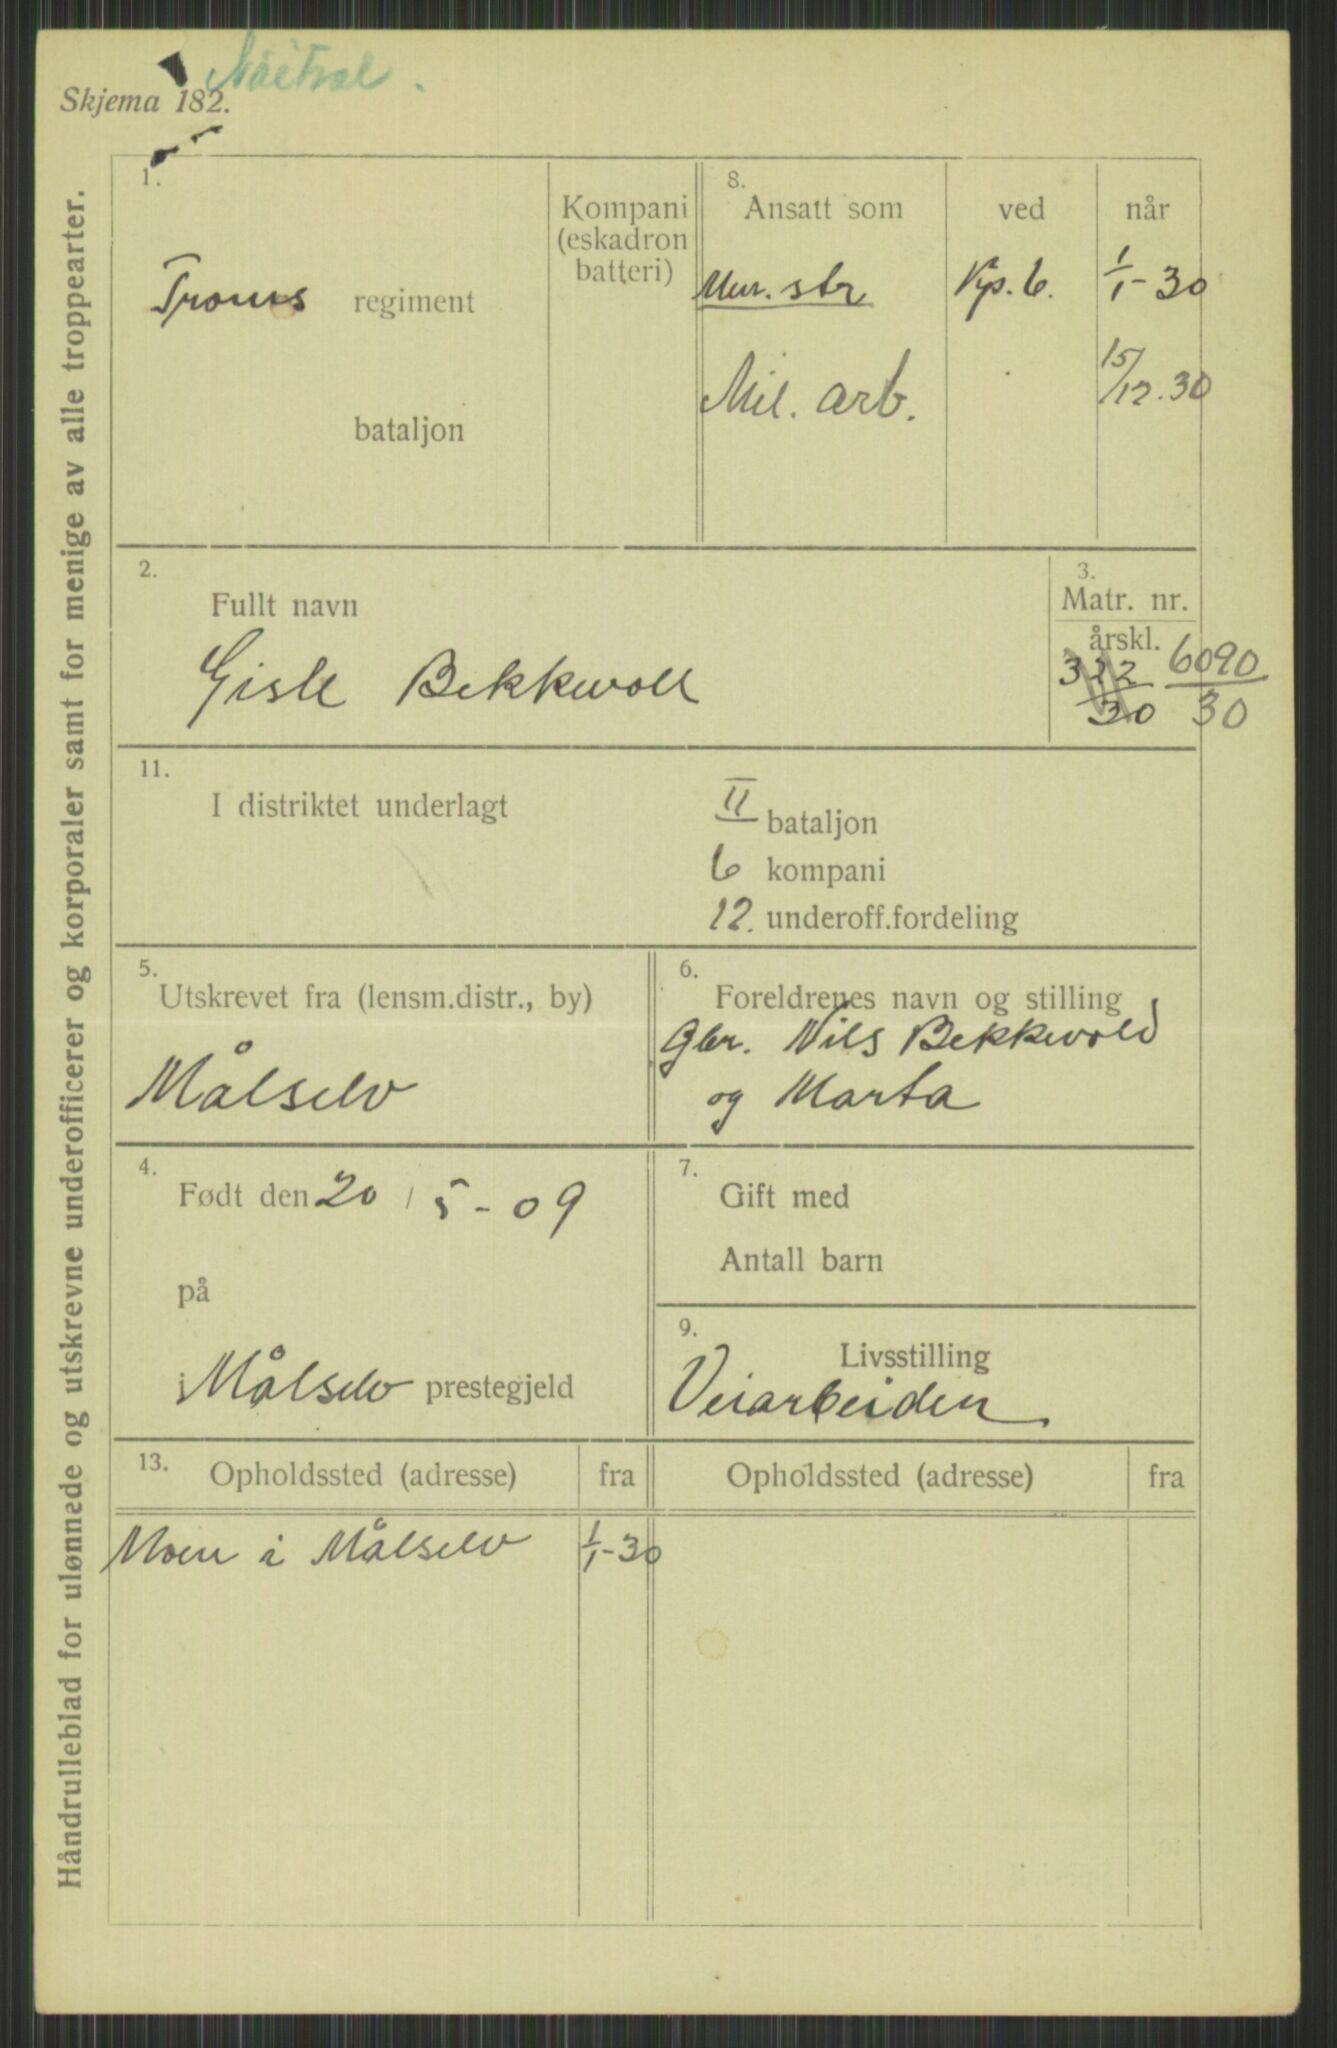 Skjema 182.
Håndrulleblad for ulønnede og utskrevne underofficerer og korporaler samt for menige av alle troppearter.
1.
Troms regiment
bataljon
Kompani
(eskadron
batteri)
8.
Ansatt som ved når
str 1/1-30
Mil. arb. 15/12.30
2.
Fullt navn
Gisle Bekkevoll
3.
Matr. nr.
årskl.
322/30 6090/30
11.
I distriktet underlagt
II bataljon
6 kompani
12. underoff.fordeling
5.
Utskrevet fra (lensm.distr., by)
Målselv
6.
Foreldrenes navn og stilling
Gbr. Nils Bekkevold
og Marta
4.
Født den 20 / 5 - 09
på
i Målselv prestegjeld
7.
Gift med
Antall barn
9.
Livsstilling
Veiarbeider
13.
Opholdssted (adresse) fra Opholdssted (adresse) fra
Moen i Målselv 1/1-30